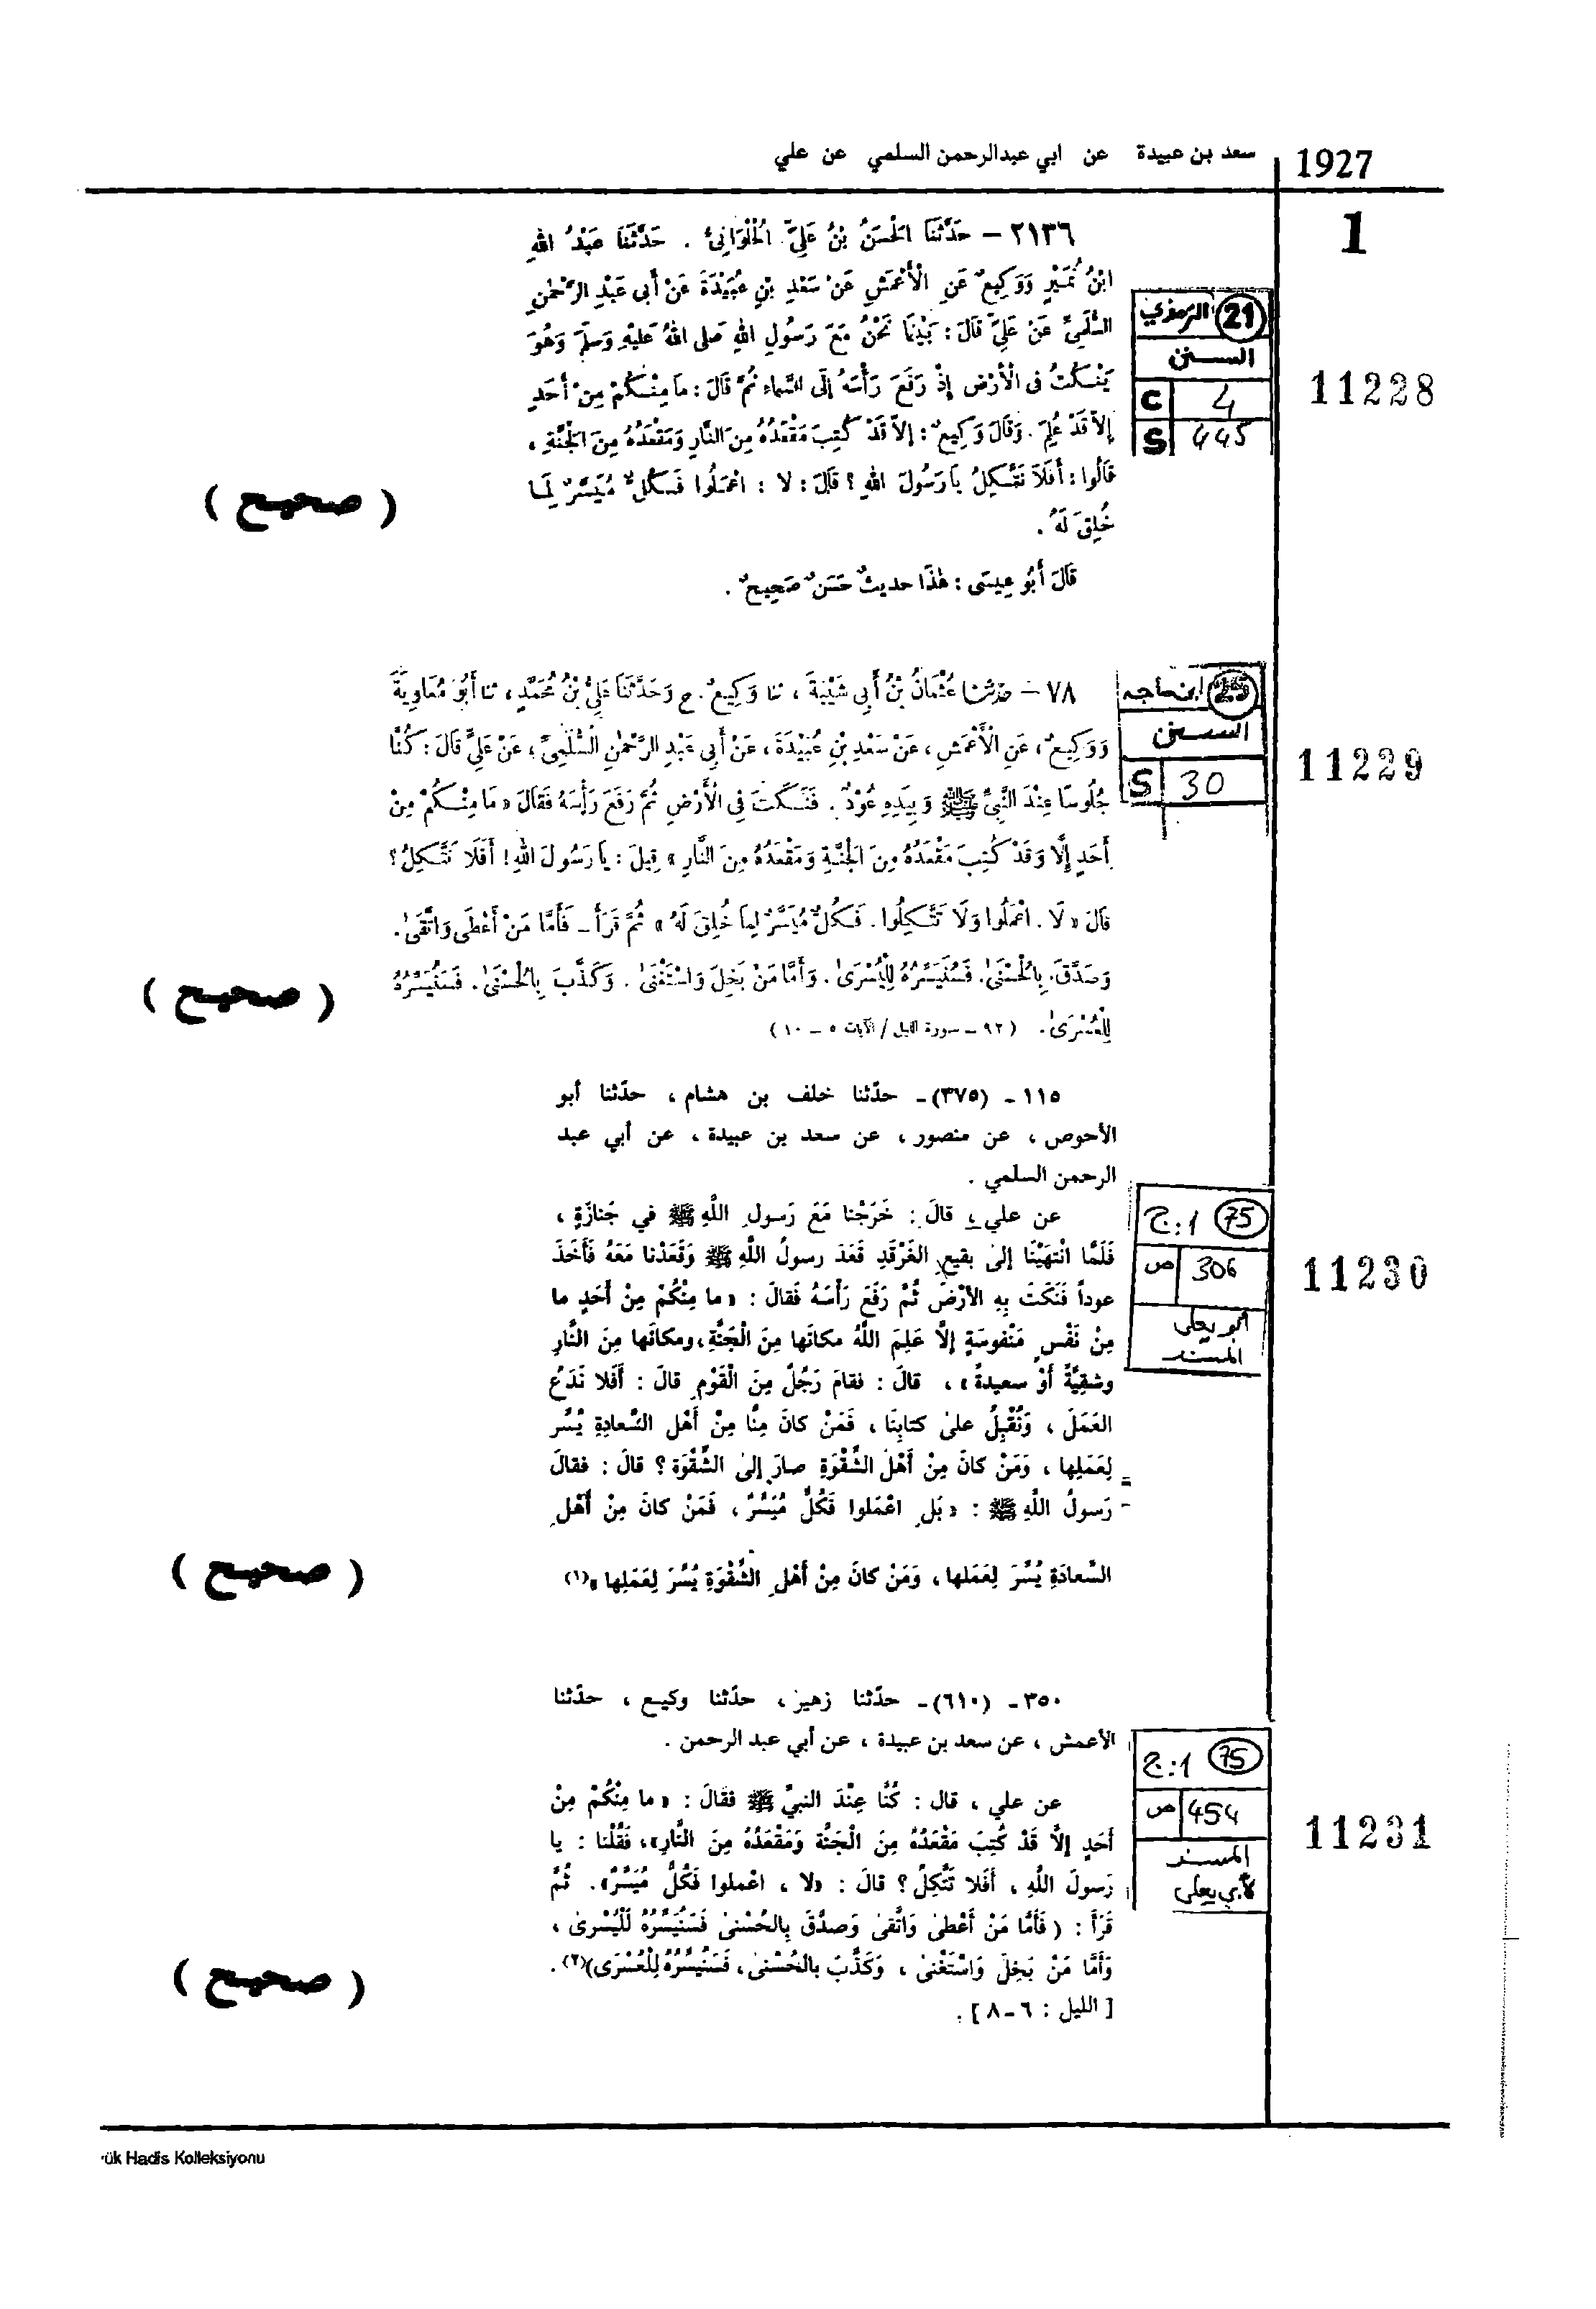 1927
سعد بن عبيدة عن ابي عبدالرحمن السلمي عن علي
1
٢١٣٦ – حَدَّثَنَا الْحَسَنُ بْنُ عَلِيٍّ الْحُلْوَانِيُّ . حَدَّثَنَا عَبْدُ اللهِ
ابْنُ نُمَيْرٍ وَوَكِيعٌ عَنِ الْأَعْمَشِ عَنْ سَعْدِ بْنِ عُبَيْدَةَ عَنْ أَبِى عَبْدِ الرَّحْمٰنِ
السُّلَمِيِّ عَنْ عَلِيٍّ قَالَ : بَيْنَمَا نَحْنُ مَعَ رَسُولِ اللهِ صَلى اللهُ عَليْهِ وَسَلمَ وَهُوَ
يَنْكُتُ فى الْأَرْضِ إِذْ رَفَعَ رَأْسَهُ إِلَى السَّمَاءِ ثُمَّ قَالَ : مَا مِنْكُمْ مِنْ أَحَدٍ
إِلاَّ قَدْ عُلِمَ . وَقَالَ وَكِيعٌ : إِلاَّ قَدْ كُتِبَ مَقْعَدُهُ مِنَ النَّارِ وَمَقْعَدُهُ مِنَ الْجَنَّةِ ،
قَالُوا : أَفَلَا نَتَّكِلُ يَا رَسُولَ اللهِ ؟ قَالَ : لا : اعْمَلُوا فَكُلٌّ مُيَسَّرٌ لِمَا
خُلِقَ لَهُ .
قَالَ أَبُو عِيسَى : هٰذَا حديثٌ حَسَنٌ صَحِيحٌ .
( صحيح )
21 الترمذي
السنن
C 4
S 445
11228
٧٨ – حدّثنا عُثْمَانُ بْنُ أَبِى شَيْبَةَ ، ثنا وَكِيعٌ . ح وَحَدَّثَنَا عَلِيُّ بْنُ مُحَمَّدٍ ، ثنا أَبُو مُعَاوِيَةَ
وَوَكِيعٌ ، عَنِ الْأَعْمَشِ ، عَنْ سَعْدِ بْنِ عُبَيْدَةَ ، عَنْ أَبِى عَبْدِ الرَّحْمٰنِ السُّلَمِيِّ ، عَنْ عَلِيٍّ قَالَ : كُنَّا
جُلُوسًا عِنْدَ النَّبِيِّ ﷺ وَبِيَدِهِ عُودٌ . فَنَكَتَ فِى الْأَرْضِ ثُمَّ رَفَعَ رَأْسَهُ فَقَالَ « مَا مِنْكُمْ مِنْ
أَحَدٍ إِلَّا وَقَدْ كُتِبَ مَقْعَدُهُ مِنَ الْجَنَّةِ وَمَقْعَدُهُ مِنَ النَّارِ » قِيلَ : يَا رَسُولَ اللهِ ! أَفَلَا نَتَّكِلُ ؟
قَالَ « لَا . اعْمَلُوا وَلَا تَتَّكِلُوا . فَكُلٌّ مُيَسَّرٌ لِمَا خُلِقَ لَهُ » ثُمَّ قَرَأَ – فَأَمَّا مَنْ أَعْطَى وَاتَّقَىٰ .
وَصَدَّقَ بِالْحُسْنَىٰ . فَسَنُيَسِّرُهُ لِلْيُسْرَىٰ . وَأَمَّا مَنْ بَخِلَ وَاسْتَغْنَىٰ . وَكَذَّبَ بِالْحُسْنَىٰ . فَسَنُيَسِّرُهُ
لِلْعُسْرَىٰ . ( ٩٢ – سورة الليل / الآيات ٥ – ١٠ )
( صحيح )
25 ابن ماجه
السنن
S 30
11229
١١٥ ـ (٣٧٥)ـ حدّثنا خلف بن هشام ، حدّثنا أبو
الأحوص ، عن منصور ، عن سعد بن عبيدة ، عن أبي عبد
الرحمن السلمي .
عن علي ، قالَ : خَرَجْنا مَعَ رَسولِ اللَّهِ ﷺ في جَنازَةٍ ،
فَلَمَّا انْتَهَيْنَا إلىٰ بقيعِ الغَرْقَدِ قَعَدَ رسولُ اللَّهِ ﷺ وَقَعَدْنا مَعَهُ فَأَخَذَ
عوداً فَنَكَتَ بِهِ الأرْضَ ثُمَّ رَفَعَ رَأْسَهُ فَقالَ : « ما مِنْكُمْ مِنْ أَحَدٍ ما
مِنْ نَفْسٍ مَنْفوسَةٍ إلَّا عَلِمَ اللَّهُ مكانَها مِنَ الْجَنَّةِ ، ومكانَها مِنَ النَّارِ
وشقِيَّةً أَوْ سعيدةً » ، قالَ : فقامَ رَجُلٌ مِنَ الْقَوْمِ قالَ : أَفَلا نَدَعُ
العَمَلَ ، وَنُقْبِلُ علىٰ كتابِنَا ، فَمَنْ كانَ مِنَّا مِنْ أَهْلِ السَّعادِةِ يُسِّر
لِعَمَلِها ، وَمَنْ كانَ مِنْ أَهْلِ الشَّقْوَةِ صارَ إلىٰ الشَّقْوَة ؟ قالَ : فقالَ
رَسولُ اللَّهِ ﷺ : « بَلِ اعْمَلوا فَكُلٌّ مُيَسَّرٌ ، فَمَنْ كانَ مِنْ أَهْلِ
السَّعادَةِ يُسِّرَ لِعَمَلها ، وَمَنْ كانَ مِنْ أَهْلِ الشَّقْوَةِ يُسِّرَ لِعَمَلِها »(١)
( صحيح )
75 ج:1
ص 306
ابو يعلى
المسند
11230
٣٥٠ ـ (٦١٠)ـ حدّثنا زهير ، حدّثنا وكيع ، حدّثنا
الأعمش ، عن سعد بن عبيدة ، عن أبي عبد الرحمن .
عن علي ، قال : كُنَّا عِنْدَ النبيِّ ﷺ فقَالَ : « ما مِنْكُمْ مِنْ
أَحَدٍ إلَّا قَدْ كُتِبَ مَقْعَدُهُ مِنَ الْجَنَّة وَمَقْعَدُهُ مِنَ النَّارِ »، فَقُلْنا : يا
رَسولَ اللَّهِ ، أَفَلا نَتَّكِلُ ؟ قالَ : «لا ، اعْملوا فَكُلٌّ مُيَسَّرٌ». ثُمَّ
قَرَأَ : ( فَأَمَّا مَنْ أَعْطىٰ وَاتَّقىٰ وَصدَّقَ بِالحُسْنىٰ فَسَنُيَسِّرُهُ لِلْيُسْرىٰ ،
وَأَمَّا مَنْ بَخِلَ وَاسْتَغْنىٰ ، وَكَذَّبَ بالحُسْنىٰ ، فَسَنُيَسِّرُهُ لِلْعُسْرَى)(٢) .
[ الليل : ٦ـ٨ ] .
( صحيح )
75 ج:1
ص 454
المسند
لأبي يعلى
11231
ük Hadis Kolleksiyonu